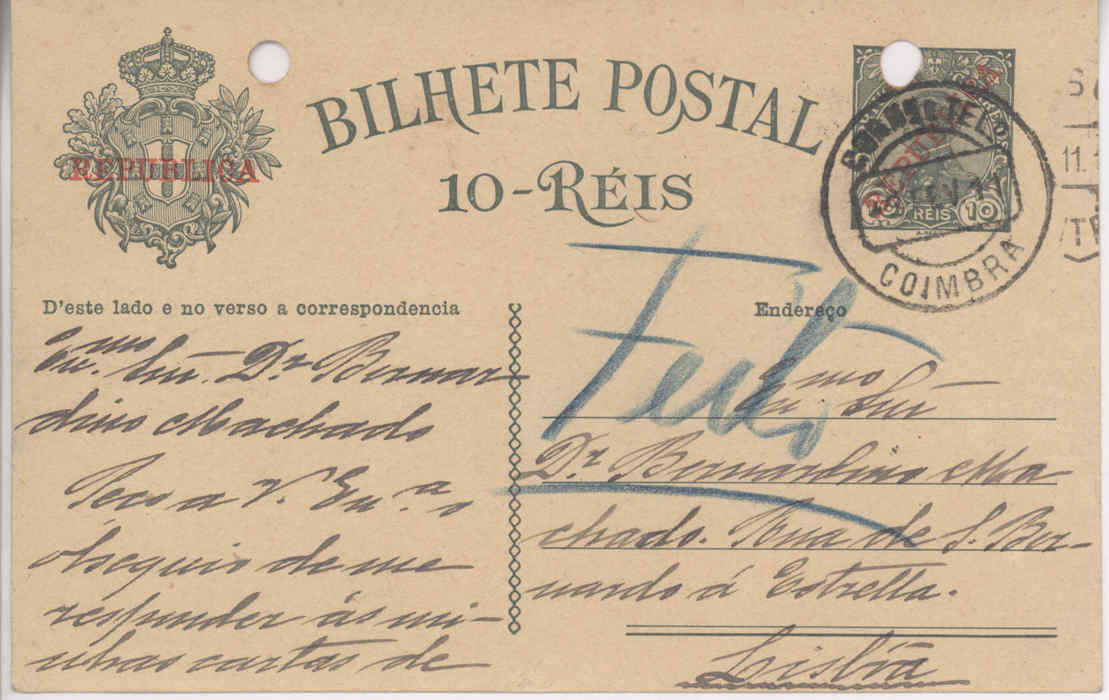 BILHETE POSTAL
10-RÉIS
REPUBLICA
REPUBLICA
RÉIS 10
COIMBRA
11.
D'este lado e no verso a correspondencia
Endereço
Feito
Exmo. Snr. Dr. Bernar-
dino Machado
Peço a V. Ex.a o
obsequio de me
responder ás mi-
nhas cartas de
Exmo Snr
Dr. Bernardino Ma
chado. Rua de S. Ber-
nardo á Estrella.
Lisbôa